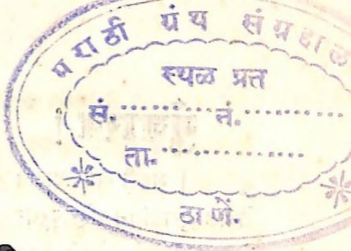 मराठी ग्रंथ संग्रहाल
स्थळ प्रत
सं. ............ नं. ................
ता. ..................
ठाणें.